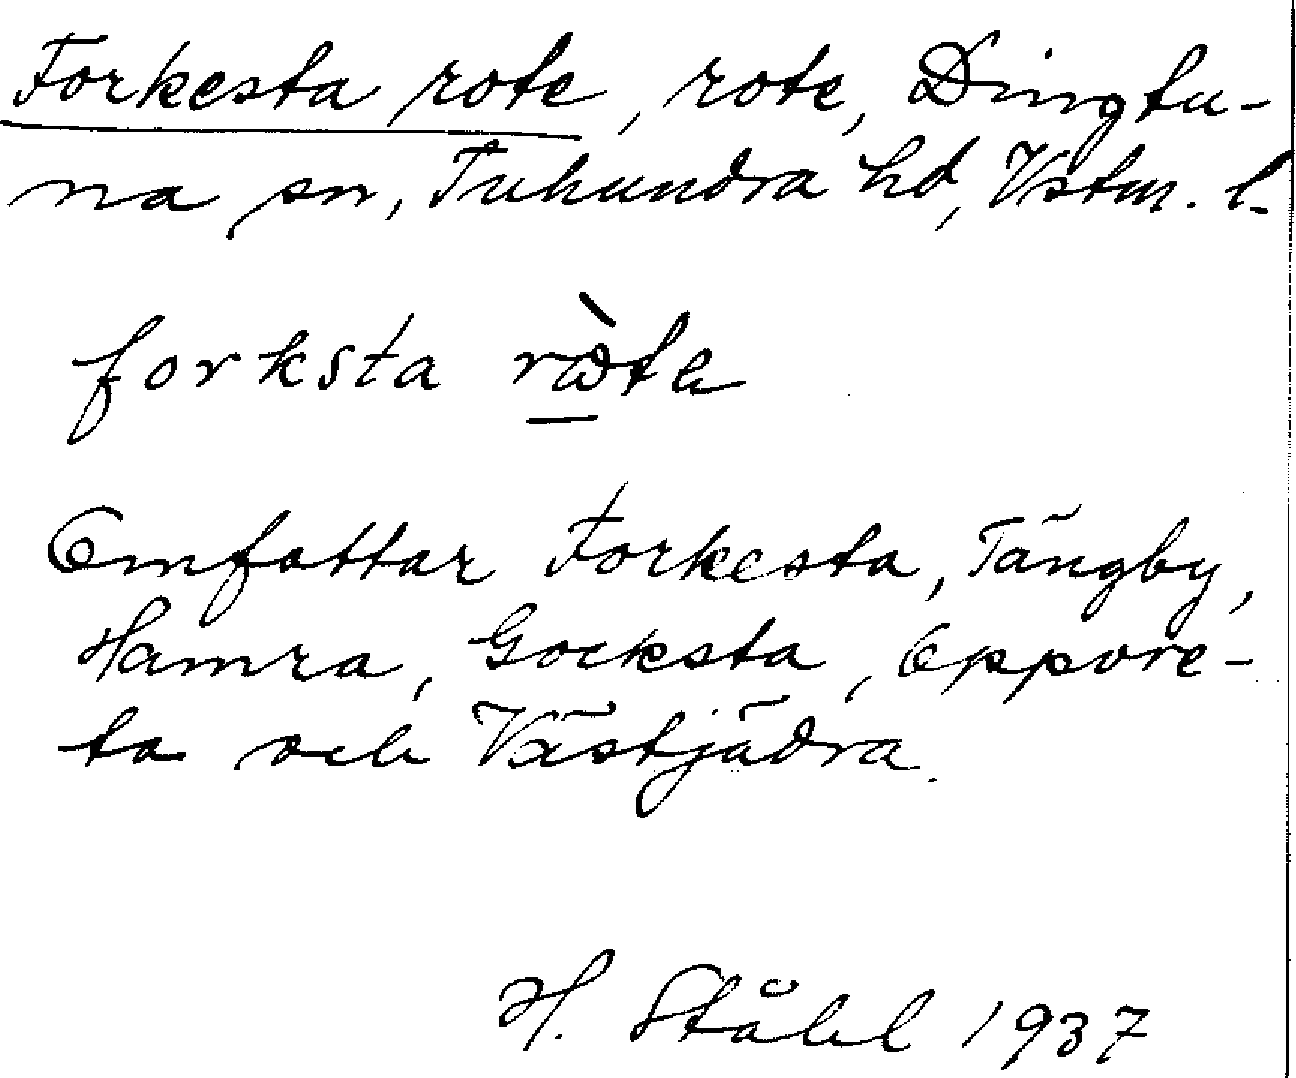 Forkesta rote, rote, Dingtu-
na sn, Tuhundra hd, Vstm. l.
forksta
Omfattar Forkesta, Tängby,
Hamra, Gocksta, Oppvre-
ta och Västjädra.
H. Ståhl 1937